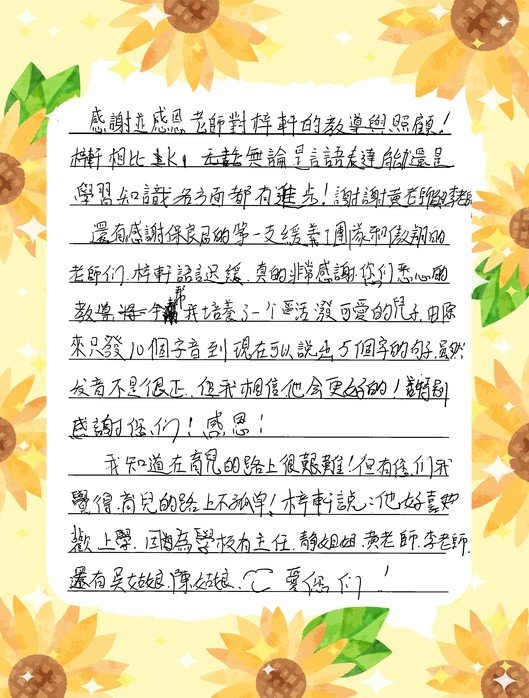 感謝並感恩老師對梓軒的教導與照顧！
梓軒相比上K1 無論是言語表達能力還是
學習知識各方面都有進步！謝謝黃老師和李老師
還有感謝保良局的第一支援 團隊和傲翔的
老師们，梓軒語言迟緩，真的非常感謝您们悉心的
教導 幫我培養了一个活潑可愛的兒子，由原
來只發10個字音到現在可以說出5個字的句子，虽然
发音不是很正，但我相信他会更好的！特別
感謝您们！感恩！
我知道在育兒的路上很艱難！但有您们我
覺得育兒的路上不孤单！梓軒說：他好喜
歡上學，因為學校有主任，靜姐姐，黄老師，李老師，
還有吴姑娘，陳姑娘，愛您们！